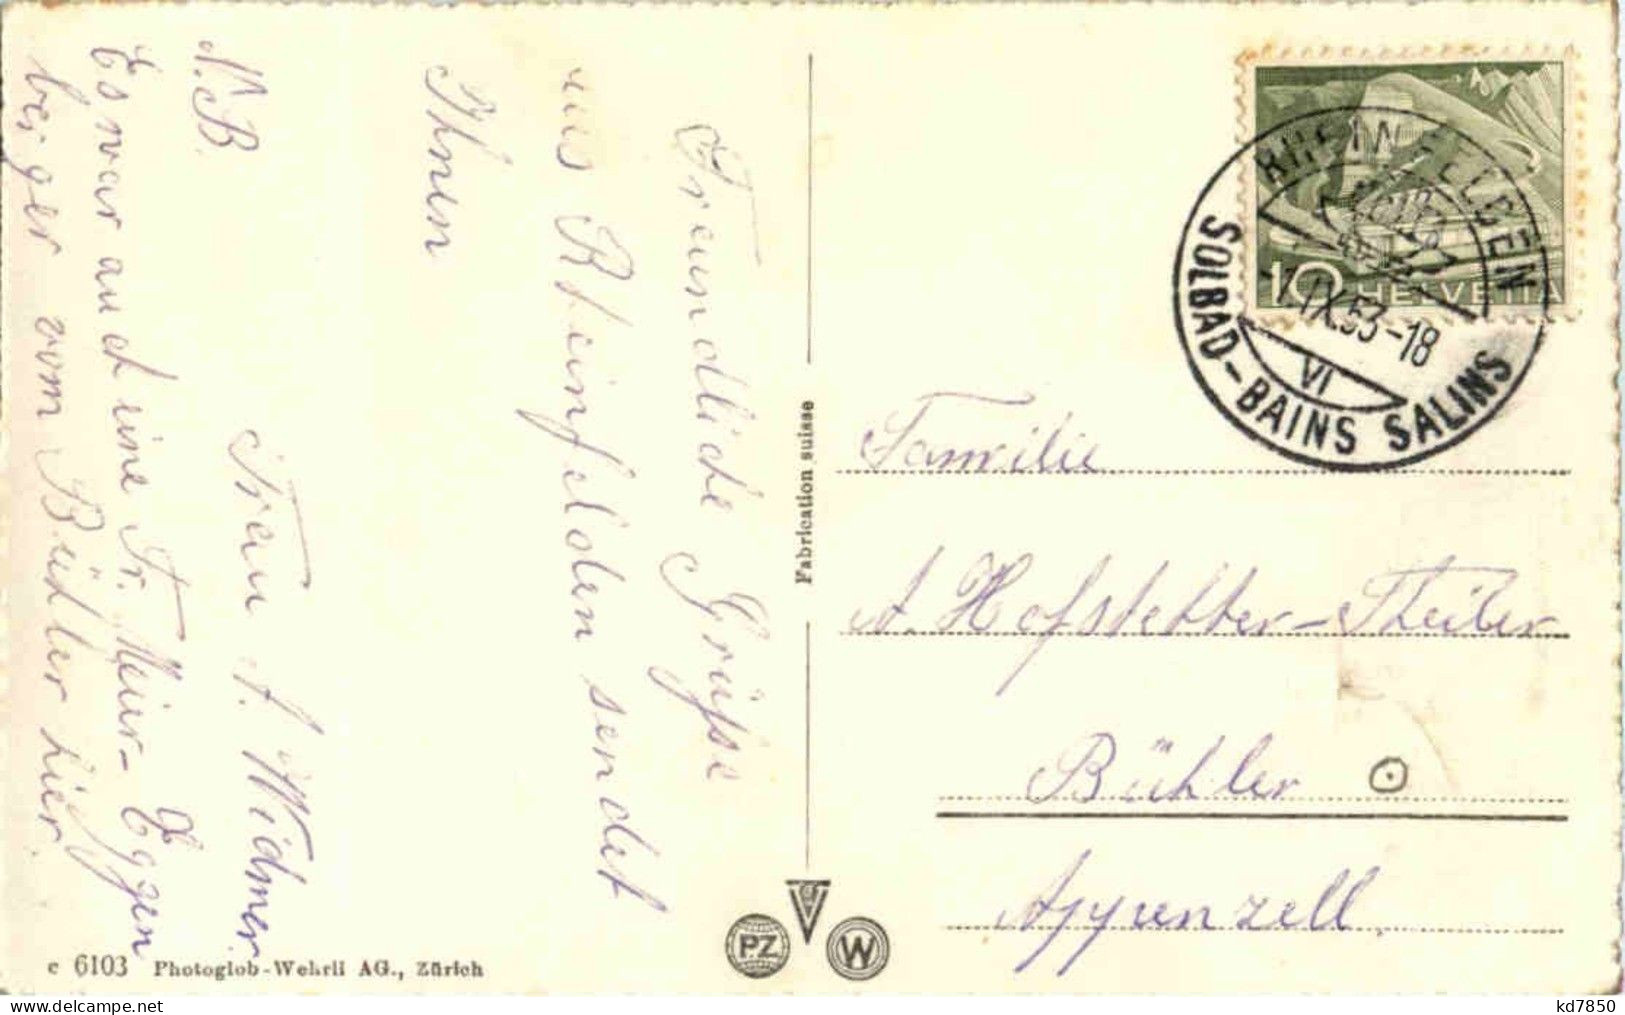 Freundliche Grüsse
aus Rheinfelden sendet
Ihnen
Frau A. Widmer
N.B.
Es war auch eine Fr. Meier-Eggen
berger vom Bühler hier.
Fabrication suisse
RHEINFELDEN
-1.IX.53-18
VI
SOLBAD-BAINS SALINS
10 HELVETIA
Familie
A. Hofstetter-Theiler
Bühler
Appenzell.
PZ
W
c 6103 Photoglob-Wehrli AG., Zürich
kd7850